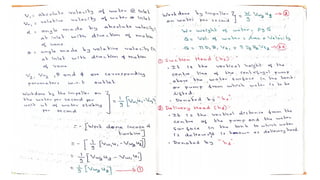 V₁ = absolute velocity of water @ inlet
Vr₁ = relative velocity of water @ inlet
α = angle made by absolute velocity
at inlet with direction of motion
of vane
θ = angle made by relative velocity Vr₁
at inlet with direction of motion
of vane
V₂, Vr₂, β and ϕ are corresponding
parameters wrt outlet
Workdone by the impeller on
the water per second per
unit wt of water striking
per second
= 1/g [Vw₁u₁ - Vw₂u₂]
= - [Work done incase of
= - [1/g [Vw₁u₁ - Vw₂u₂]]
= 1/g [Vw₂u₂ - Vw₁u₁]
= 1/g [Vw₂u₂] → ①
Workdone by impeller
on water per second
= W/g Vw₂u₂ → ②
W = weight of water, ρg Q
Q = Vol of water = Area × Velocity
① Suction Head (hs):
- It is the vertical height of the
centre line of the centrifugal pump
above the water surface in the tank
or pump from which water is to be
lifted.
- Denoted by "hs"
② Delivery Head (hd):
- It is the vertical distance from the
centre of the pump and the water
surface in the tank to which water
is delivered is known as delivery head.
- Denoted by "hd".